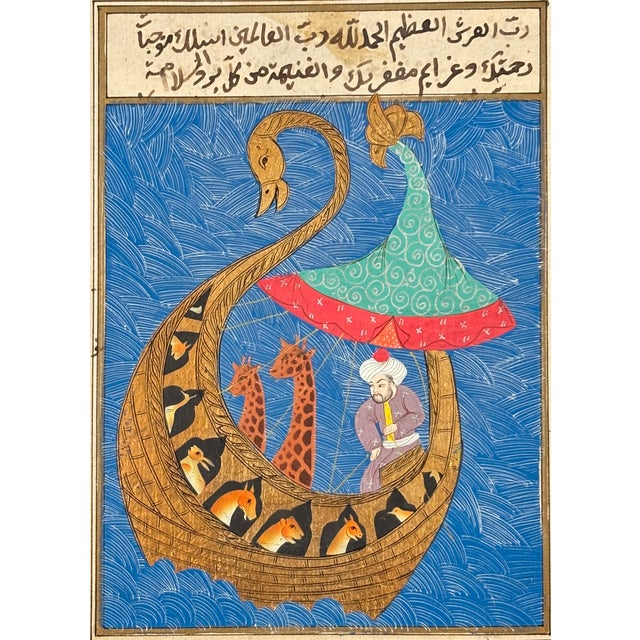 رب العرش العظيم الحمد لله رب العالمين اسئلك موجبات
رحمتك وعزايم مغفرتك والغنيمة من كل بر والسلامة